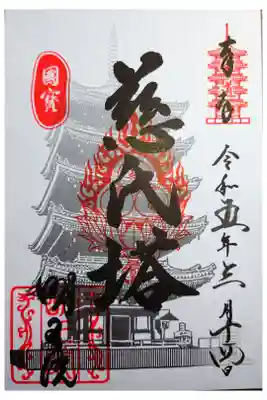 奉拝
令和五年 月十四日
慈氏塔
國寶
明王院